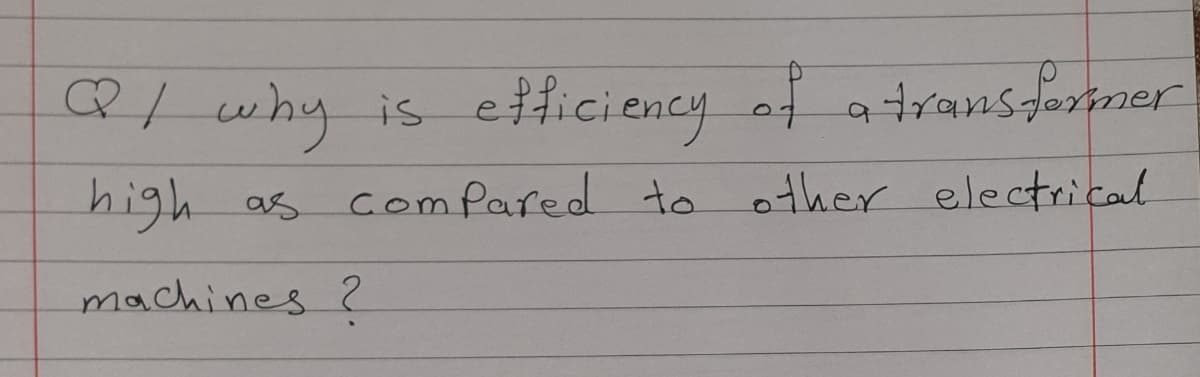 Q/ why is efficiency of a transformer
high as compared to other electrical
machines ?